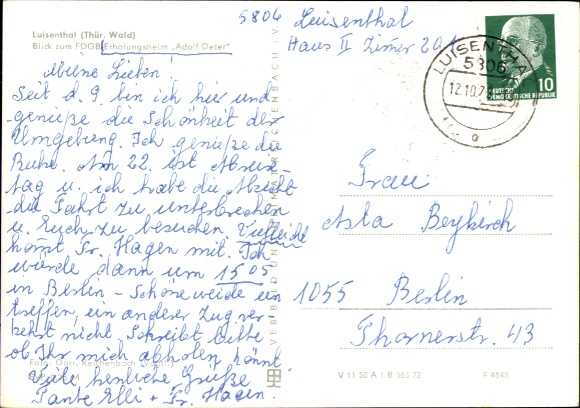 Luisenthal (Thür. Wald)
Blick zum FDGB Erholungsheim „Adolf Deter"
5804 Luisenthal
Haus II Zimer 201
LUISENTHAL
5806
12.10.7
a
DEUTSCHE
DEMOKRATISCHE REPUBLIK
10
Meine Lieben!
Seit d. 9. bin ich hier und
genieße die Schönheit der
Umgebung. Ich genieße die
Ruhe. Am 22. ist Abreise-
tag u. ich habe die Absicht
die Fahrt zu unterbrechen
u. Euch zu besuchen. Vielleicht
kommt Fr. Hagen mit. Ich
würde dann um 15 05
in Berlin - Schöneweide ein
treffen, ein anderer Zug ver
kehrt nicht. Schreibt bitte
ob Ihr mich abholen könnt
Viele herzliche Grüße
Tante Elli + Fr. Hagen.
Foto: Darr, Reichenbach (Vogtl.)
VEB BILD UND REICHENBACH I. V.
Frau
Asta Bergkirch
1055 Berlin
Thornerstr. 43
V 11 50 A 1 B 363 72
9 4848